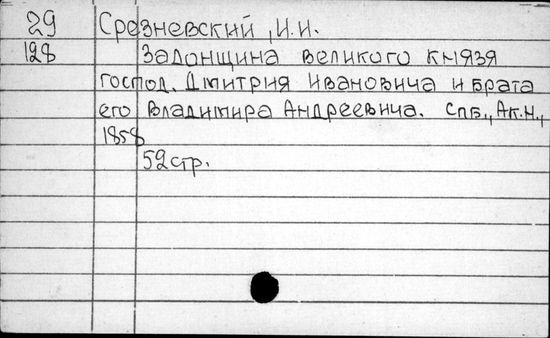 29 Срезневский, И.И.
128 Задонщина великого князя
господ. Дмитрия Ивановича и брата
его Владимира Андреевича. Спб., Ак.Н.,
1858
52 стр.